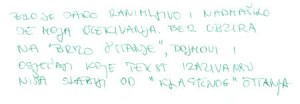 BILO JE JAKO ZANIMLJIVO I NADMAŠILO
JE MOJA OČEKIVANJA. BEZ OBZIRA
NA "BRZO ČITANJE", DOJMOVI I
OSJEĆAJI KOJE TEKST IZAZIVAJU
NISU SLABIJI OD "KLASIČNOG" ČITANJA.